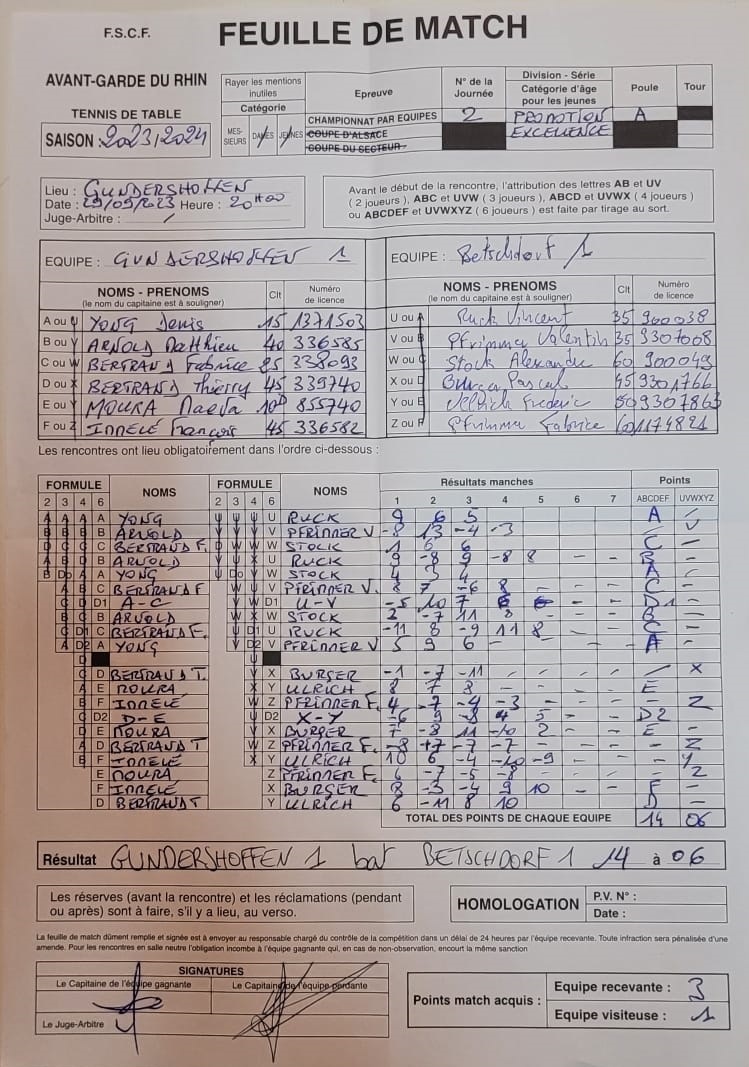 F.S.C.F.
FEUILLE DE MATCH
AVANT-GARDE DU RHIN
TENNIS DE TABLE
SAISON 2023/2024
Rayer les mentions inutiles
Catégorie
MESSIEURS DAMES JEUNES
Epreuve
CHAMPIONNAT PAR EQUIPES
COUPE D'ALSACE
COUPE DU SECTEUR
N° de la Journée
2
Division - Série
Catégorie d'âge
pour les jeunes
PROMOTION
EXCELLENCE
Poule
A
Tour
Lieu : GUNDERSHOFFEN
Date : 29/09/2023 Heure : 20H00
Juge-Arbitre : /
Avant le début de la rencontre, l'attribution des lettres AB et UV
( 2 joueurs ), ABC et UVW ( 3 joueurs ), ABCD et UVWX ( 4 joueurs )
ou ABCDEF et UVWXYZ ( 6 joueurs ) est faite par tirage au sort.
EQUIPE : GUNDERSHOFFEN 1
EQUIPE : Betschdorf 1
NOMS - PRENOMS
(le nom du capitaine est à souligner)
Clt
Numéro de licence
NOMS - PRENOMS
(le nom du capitaine est à souligner)
Clt
Numéro de licence
A ou U YONG Denis 15 1371503
B ou V ARNOLD Matthieu 40 336585
C ou W BERTRAND Fabrice 338093
D ou X BERTRAND Thierry 45 339740
E ou Y MOURA 855740
F ou Z François 45 336582
U ou A Ruck Vincent 35 900038
V ou B Pfrimmer Valentin 35 9307008
W ou C Stock Alexandre 60 900049
X ou D Burger Pascal
Y ou E Ulrich Frederic
Z ou F Pfrimmer Fabrice
Les rencontres ont lieu obligatoirement dans l'ordre ci-dessous :
FORMULE NOMS FORMULE NOMS Résultats manches Points
2 3 4 6 2 3 4 6 1 2 3 4 5 6 7 ABCDEF UVWXYZ
A A A A YONG U U U U RUCK 9 6 5 A
B B B B ARNOLD V V V V PFRIMMER V -8 13 -4 -3 V
C BERTRAND F. W W STOCK 1 6 6 C
B ARNOLD U RUCK 9 -8 9 -8 8 B
A YONG W STOCK 4 3 4 A
C BERTRAND F V PFRIMMER V. 8 7 -6 8 C
D1 A-C D1 U-V -5 10 7 6 D1
B ARNOLD W STOCK 2 -7 11 8 B
C BERTRAND F. U RUCK -11 8 -9 11 8 C
A YONG V PFRIMMER V 5 9 6 A
D BERTRAND T. X BURGER -1 -7 -11 X
E MOURA Y ULRICH 8 7 8 E
F Z PFRIMMER F. 4 -7 -4 -3 Z
D2 D-E D2 X-Y -6 9 -8 4 5 D2
E MOURA X BURGER 7 -8 11 -10 2 E
D BERTRAND T Z PFRIMMER F. -8 +7 -7 -7 Z
F Y ULRICH 10 6 -4 -10 -9 Y
E MOURA Z PFRIMMER F. 6 -7 -5 -8 Z
F X BURGER 8 -3 -4 9 10 F
D BERTRAND T Y ULRICH 6 -11 8 10 D
TOTAL DES POINTS DE CHAQUE EQUIPE 14 06
Résultat GUNDERSHOFFEN 1 bat BETSCHDORF 1 14 à 06
Les réserves (avant la rencontre) et les réclamations (pendant
ou après) sont à faire, s'il y a lieu, au verso.
HOMOLOGATION
P.V. N° :
Date :
La feuille de match dûment remplie et signée est à envoyer au responsable chargé du contrôle de la compétition dans un délai de 24 heures par l'équipe recevante. Toute infraction sera pénalisée d'une
amende. Pour les rencontres en salle neutre l'obligation incombe à l'équipe gagnante qui, en cas de non-observation, encourt la même sanction
SIGNATURES
Le Capitaine de l'équipe gagnante
Le Capitaine de l'équipe perdante
Le Juge-Arbitre
Points match acquis :
Equipe recevante : 3
Equipe visiteuse : 1